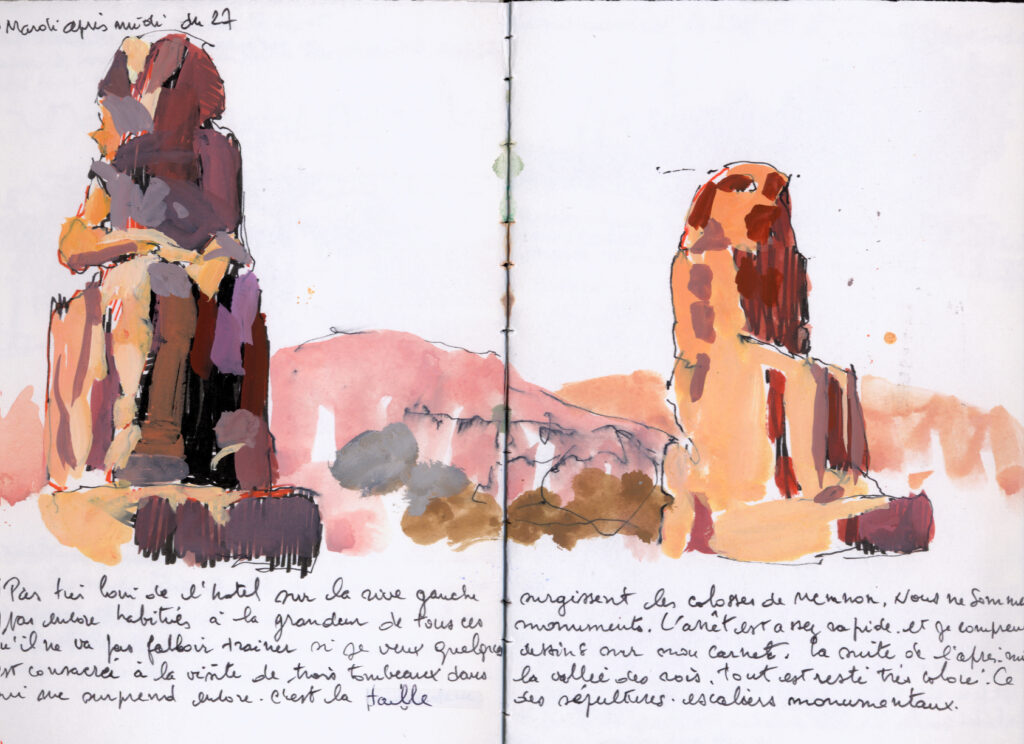 Mardi après midi du 27
Pas très loin de l'hotel sur la rive gauche surgissent les colosses de Memnon. Nous ne somme
pas encore habitués à la grandeur de tous ces monuments. L'arrêt est assez rapide. et je compren
u'il ne va pas falloir trainer si je veux quelques dessins sur mon carnet. la suite de l'après-mi
est consacrée à la visite de trois tombeaux dans la vallée des rois. Tout est resté très coloré. Ce
ui me surprend encore. c'est la taille des sépultures. escaliers monumentaux.